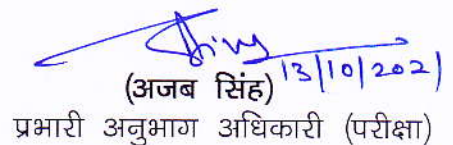 13/10/2021
(अजब सिंह)
प्रभारी अनुभाग अधिकारी (परीक्षा)